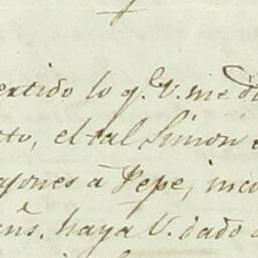 ertido lo q.e V. me di
to, el tal Simon
ones à Pepe, inco
haya V. dado